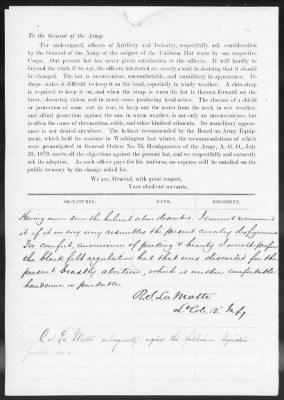 To the General of the Army:
The undersigned, officers of Artillery and Infantry, respectfully ask consideration
by the General of the Army of the subject of the Uniform Hat worn by our respective
Corps. Our present hat has never given satisfaction to the officers. It will hardly be
beyond the truth if we say, the officers interested are nearly a unit in desiring that it should
be changed. This hat is inconvenient, uncomfortable, and unmilitary in appearance. Its
shape makes it difficult to keep it on the head, especially in windy weather. A chin-strap
is required to keep it on, and when the strap is worn the hat is thrown forward on the
brow, obscuring vision, and in many cases producing head-aches. The absence of a shield
or protection of some sort in rear, to keep out the rain from the neck in wet weather,
and afford protection against the sun in warm weather, is not only an inconvenience, but
is often the cause of rheumatism, colds, and other kindred ailments. Its unmilitary appear-
ance is not denied anywhere. The helmet recommended by the Board on Army Equip-
ment, which held its sessions in Washington last winter, the recommendations of which
were promulgated in General Orders No. 76, Headquarters of the Army, A. G. O., July
23, 1879, meets all the objections against the present hat, and we respectfully and earnestly
ask its adoption. As each officer pays for his uniform, no expense will be entailed on the
public treasury by the change asked for.
We are, General, with great respect,
Your obedient servants,
SIGNATURES. RANK. REGIMENT.
Having never seen the helmet above described, I cannot recommend
it if it in any way resembles the present cavalry
For comfort, convenience of packing & beauty I would prefer
the black felt regulation hat that was discarded for the
present beastly abortion, which is neither comfortable
handsome or packable.
R. S. La Motte
Lt Col. 12 Infy
Col La Motte subsequently signed the petition - signature